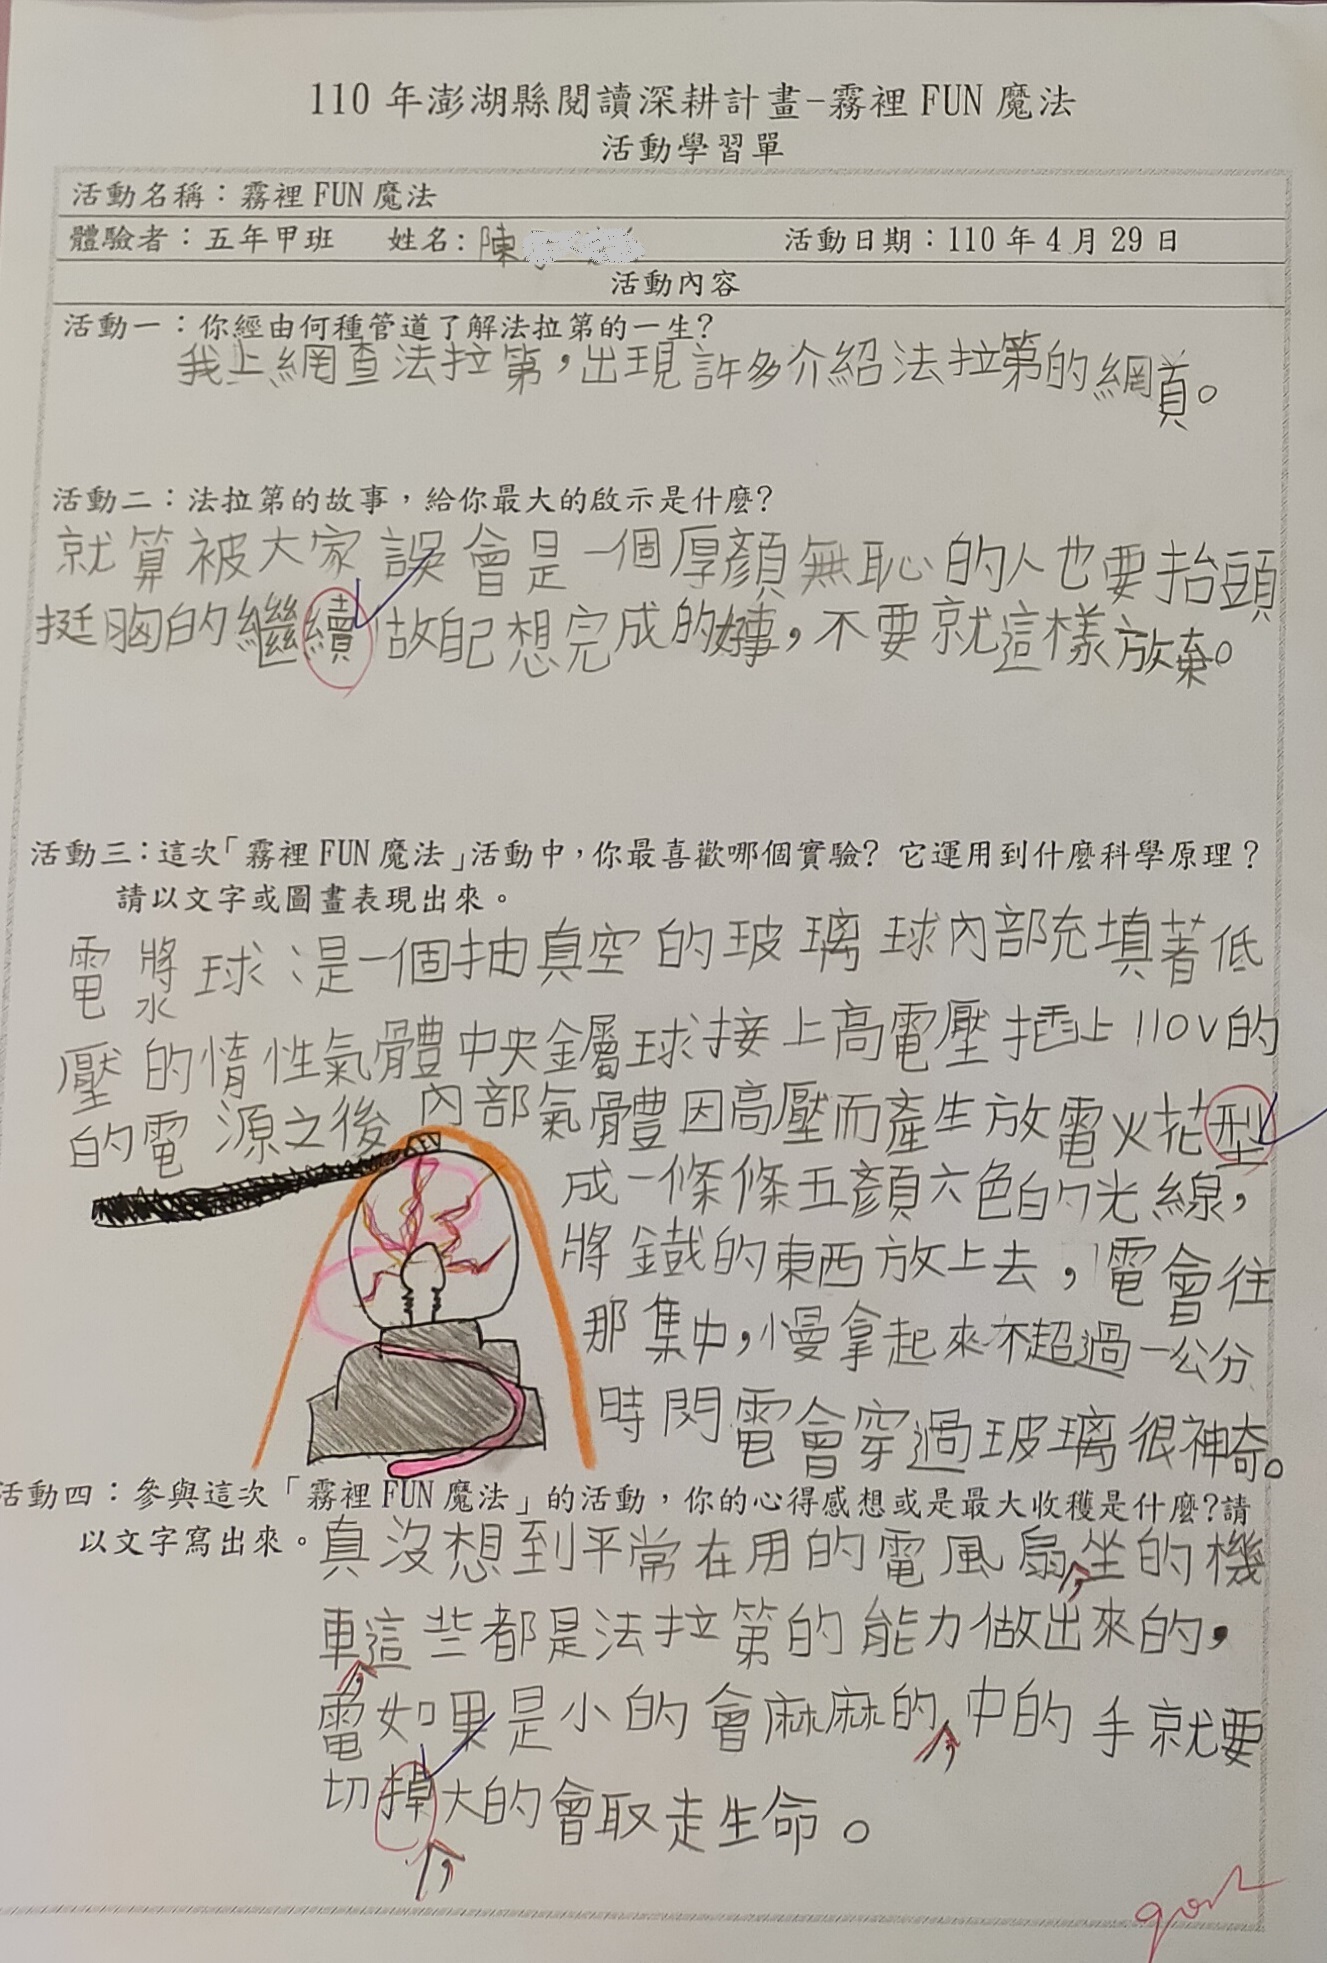 110 年澎湖縣閱讀深耕計畫-霧裡 FUN 魔法
活動學習單
活動名稱：霧裡 FUN 魔法
體驗者：五年甲班 姓名：陳 活動日期：110 年 4 月 29 日
活動內容
活動一：你經由何種管道了解法拉第的一生?
我上網查法拉第，出現許多介紹法拉第的網頁。
活動二：法拉第的故事，給你最大的啟示是什麼?
就算被大家誤會是一個厚顏無恥的人也要抬頭
挺胸的繼續做自己想完成的好事，不要就這樣放棄。
活動三：這次「霧裡 FUN 魔法」活動中，你最喜歡哪個實驗? 它運用到什麼科學原理？
請以文字或圖畫表現出來。
電漿球：是一個抽真空的玻璃球內部充填著低
壓的惰性氣體中央金屬球接上高電壓插上110V的
的電源之後內部氣體因高壓而產生放電火花型
成一條條五顏六色的光線，
將鐵的東西放上去，電會往
那集中，慢拿起來不超過一公分
時閃電會穿過玻璃很神奇。
活動四：參與這次「霧裡 FUN 魔法」的活動，你的心得感想或是最大收穫是什麼?請
以文字寫出來。
真沒想到平常在用的電風扇，坐的機
車，這些都是法拉第的能力做出來的，
電如果是小的會麻麻的，中的手就要
切掉，大的會取走生命。